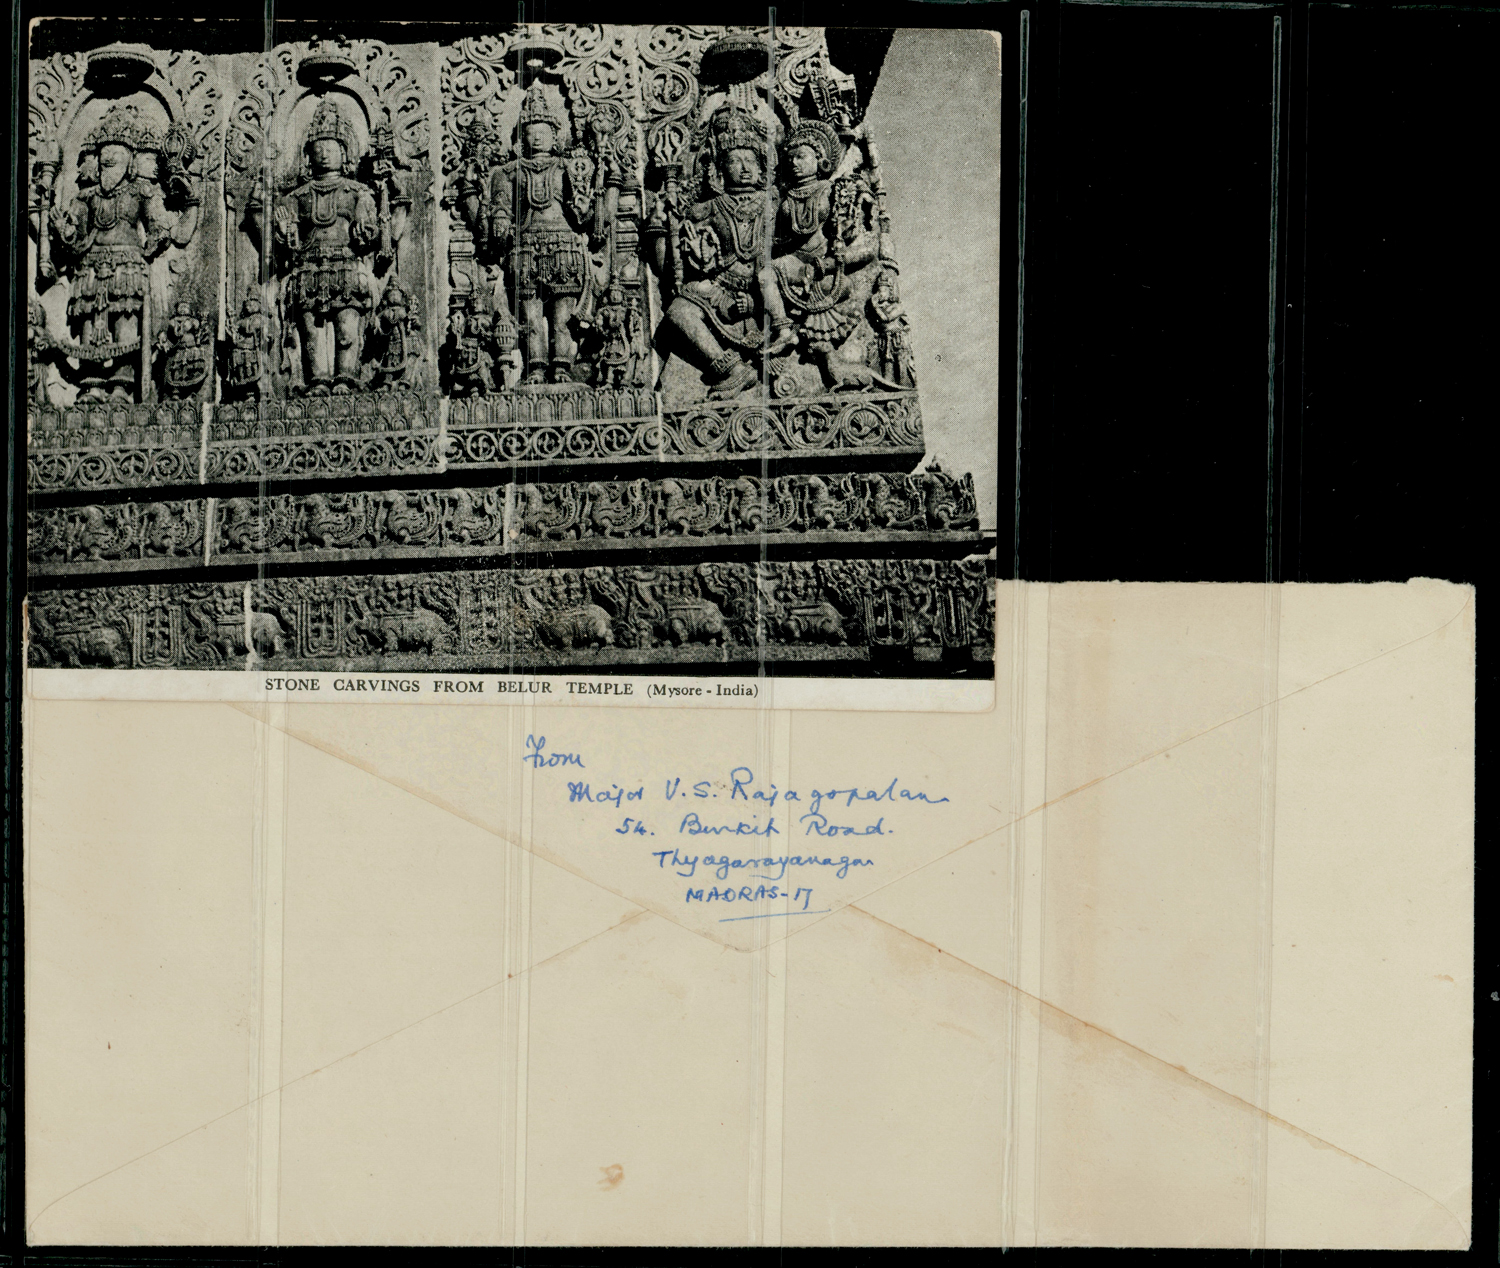 STONE CARVINGS FROM BELUR TEMPLE (Mysore - India)
From
Major V. S. Rajagopalan
54. Burkit Road.
Thyagarayanagar
MADRAS-17